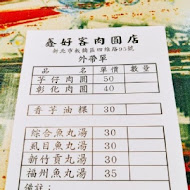 鑫好客肉圓店
新北市板橋區四維路93號
外帶單
品名 單價 數量
芋仔肉圓 50
彰化肉圓 40
香芋油粿 30
綜合魚丸湯 30
虱目魚丸湯 30
新竹貢丸湯 30
福州魚丸湯 35
備註：